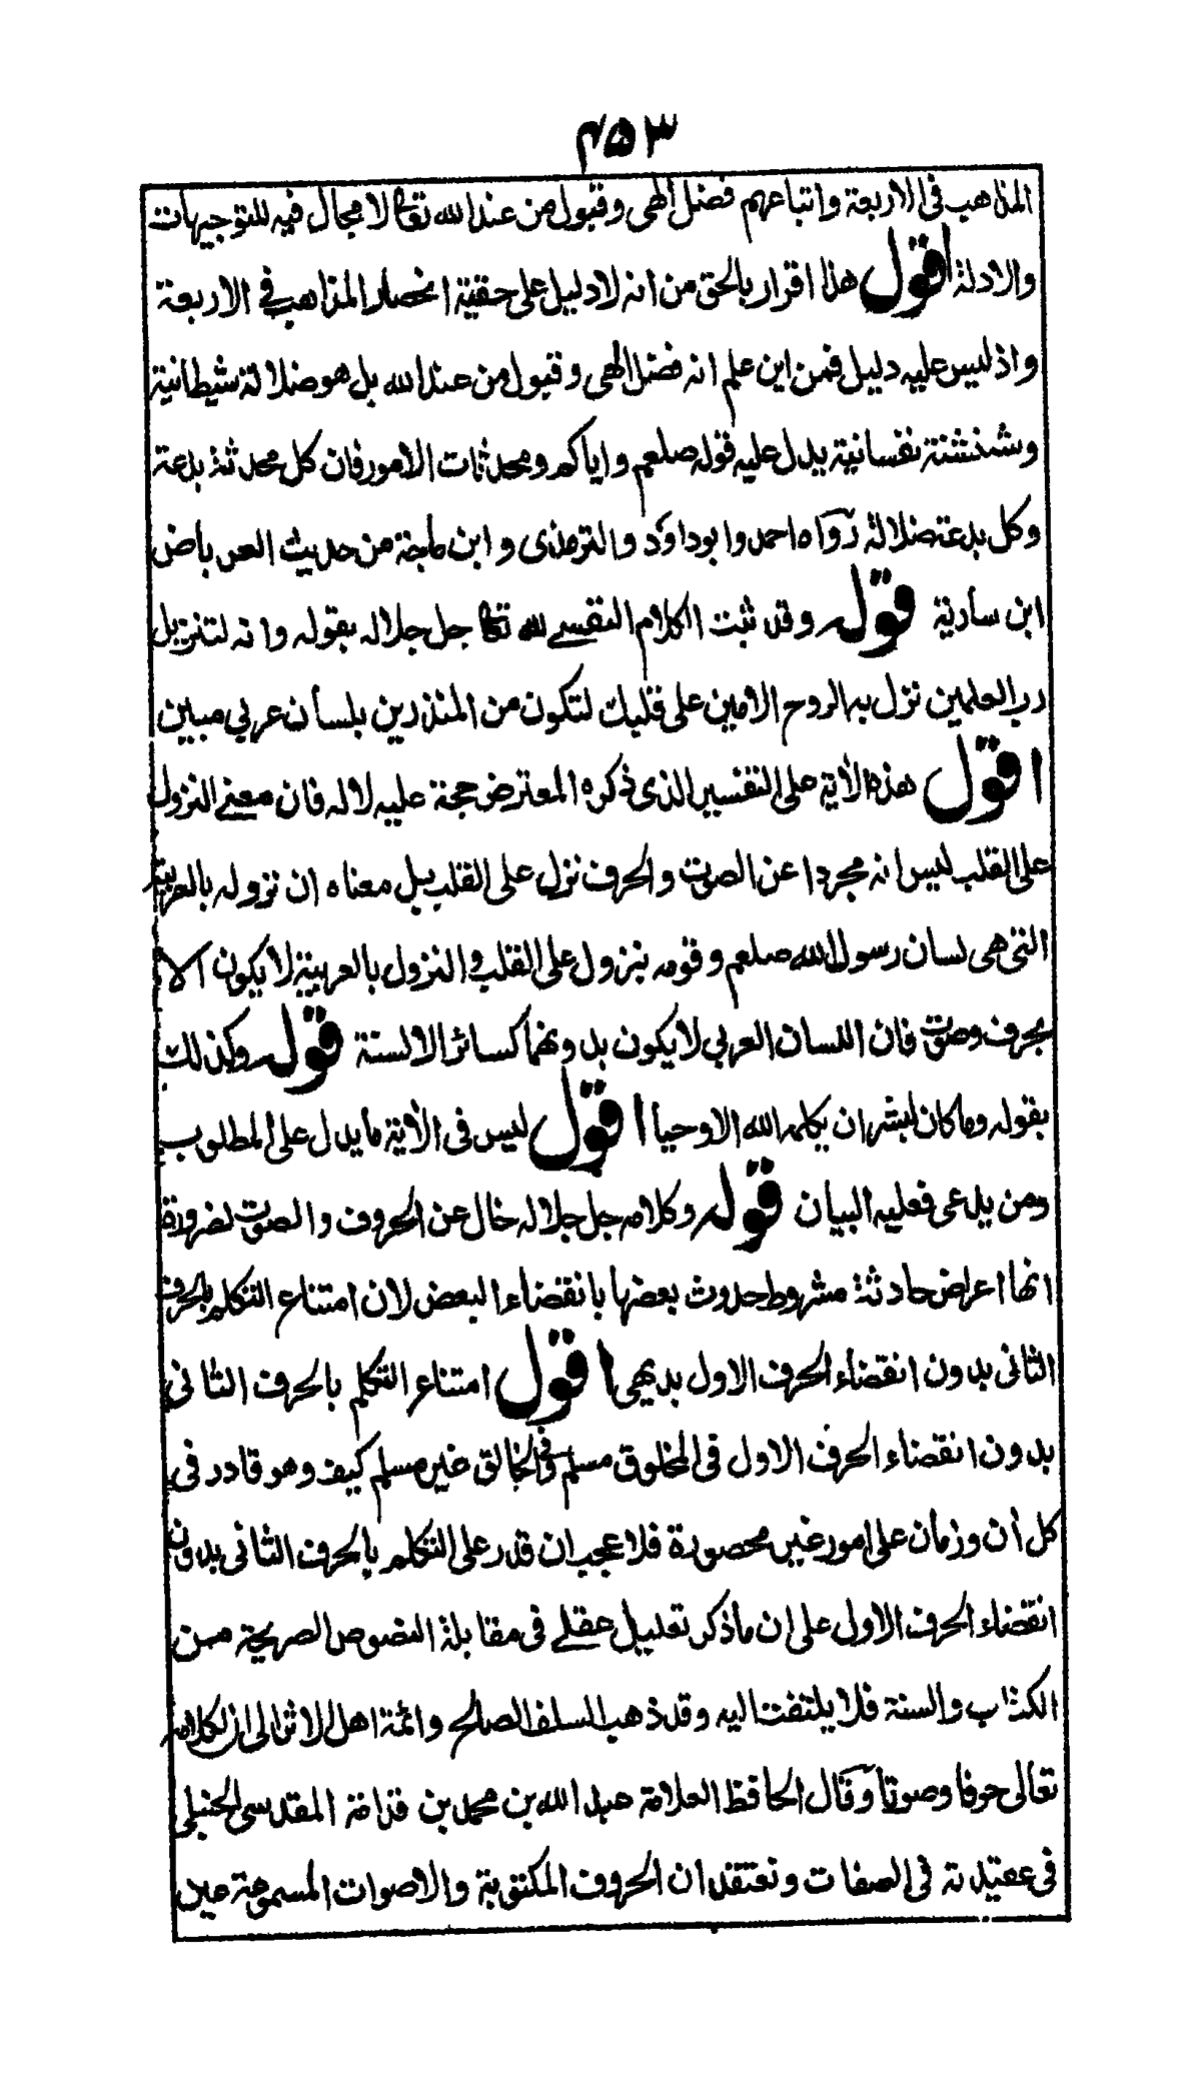 ۴۵۳
المذاهب فى الاربعة واتباعهم فضل الهى وقبول من عند الله تعا لا مجال فيه للتوجيهات
والادلة اقول هذا اقرار بالحق من انه لا دليل على حقية انحصار المذاهب فى الاربعة
واذ ليس عليه دليل فمن اين علم انه فضل الهى وقبول من عند الله بل هو ضلالة شيطانية
وشنشنة نفسانية يدل عليه قوله صلعم واياكم ومحدثات الامور فان كل محدثة بدعة
وكل بدعة ضلالة رواه احمد وابو داؤد والترمذى وابن ماجة من حديث العرباض
ابن سارية قوله وقد ثبت الكلام النفسے لله تعا جل جلاله بقوله وانه لتنزيل
رب العلمين نزل به الروح الامين على قلبك لتكون من المنذرين بلسان عربي مبين
اقول هذه الآية على التفسير الذى ذكره المعترض حجة عليه لا له فان معنے النزول
على القلب ليس انه مجردا عن الصوت والحرف نزل على القلب بل معناه ان نزوله بالعربية
التى هى لسان رسول الله صلعم وقومه بنزول على القلب والنزول بالعربية لا يكون الا
بحرف وصوت فان اللسان العربي لا يكون بدونهما كسائر الالسنة قوله وكذلك
بقوله وماكان لبشر ان يكلمه الله الا وحيا اقول ليس فى الآية ما يدل على المطلوب
ومن يدعى فعليه البيان قوله وكلامه جل جلاله خال عن الحروف والصوت لضرورة
انها اعراض حادثة مشروط حدوث بعضها بانقضاء البعض لان امتناع التكلم بالحرف
الثانى بدون انقضاء الحرف الاول بديهى اقول امتناع التكلم بالحرف الثانى
بدون انقضاء الحرف الاول فى المخلوق مسلم وفى الخالق غير مسلم كيف وهو قادر فى
كل أن وزمان على امور غير محصورة فلا عجب ان قدر على التكلم بالحرف الثانى بدون
انقضاء الحرف الاول على ان ماذكر تعليل عقلے فى مقابلة النصوص الصريحة من
الكتاب والسنة فلا يلتفت اليه وقد ذهب السلف الصالح وائمة اهل الاثر الى ان لكلامه
تعالى حرفا وصوتا وقال الحافظ العلامة عبد الله بن محمد بن قدامة المقدسى الحنبلى
فى عقيدته فى الصفات ونعتقد ان الحروف المكتوبة والاصوات المسموعة عين